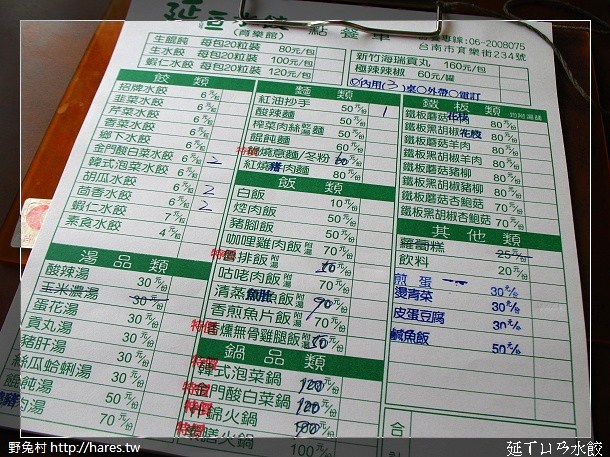 延豆水餃 點餐單
(育樂館)
專線:06-2008075
台南市育樂街234號
生餛飩 每包20粒裝 80元/包
生水餃 每包20粒裝 100元/包
蝦仁水餃 每包20粒裝 120元/包
新竹海瑞貢丸 160元/包
極辣辣椒 60元/罐
內用(3)桌 外帶 電訂
餃類
招牌水餃 6元/粒
韭菜水餃 6元/粒
芹菜水餃 6元/粒
香菜水餃 6元/粒
鄉下水餃 6元/粒
金門酸白菜水餃 6元/粒 2
韓式泡菜水餃 6元/粒
胡瓜水餃 6元/粒
茴香水餃 6元/粒 2
蝦仁水餃 7元/粒 2
素食水餃 4元/粒
湯品類
酸辣湯 30元/份
玉米濃湯 30元/份
蛋花湯 30元/份
貢丸湯 30元/份
豬肝湯 30元/份
絲瓜蛤蜊湯 30元/份
餛飩湯 50元/份
肉湯 70元/份
麵類
紅油抄手 50元/份 1
酸辣麵 50元/份
榨菜肉絲乾湯麵 50元/份
餛飩麵 60元/份
特價 鍋燒意麵/冬粉 60元/份
紅燒豬肉麵 80元/份
飯類
白飯 10元/份
焢肉飯 50元/份
豬腳飯 50元/份
咖哩雞肉飯 附湯 70元/份
特價 魚排飯 附湯 50元/份
咕咾肉飯 附湯 70元/份
清蒸鱈魚飯 附湯 90元/份
香煎魚片飯 附湯 70元/份
特價 香燻無骨雞腿飯 附湯 50元/份
鍋品類
特價 韓式泡菜鍋 120元/份
特價 金門酸白菜鍋 120元/份
特價 什錦火鍋 100元/份
膳火鍋 100元/份
鐵板類 均附湯麵
鐵板蘑菇花枝 80元/份
鐵板黑胡椒花枝 80元/份
鐵板蘑菇羊肉 80元/份
鐵板黑胡椒羊肉 80元/份
鐵板蘑菇豬柳 80元/份
鐵板黑胡椒豬柳 80元/份
鐵板蘑菇杏鮑菇 70元/份
鐵板黑胡椒杏鮑菇 70元/份
其他類
蘿蔔糕 25元/份
飲料 20元/份
煎蛋
燙青菜 30元/份
皮蛋豆腐 30元/份
鹹魚飯 50元/份
合計
野兔村 http://hares.tw/
延ㄒㄧㄢ水餃